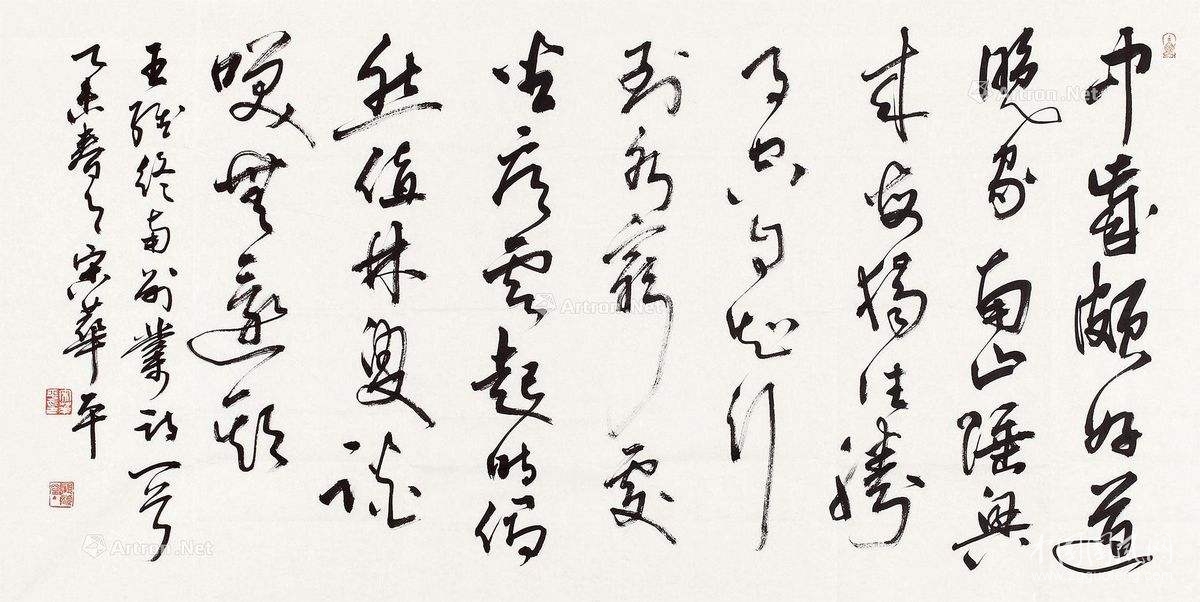 中歲頗好道
晚家南山陲興
來每獨往勝
事空自知行
到水窮處
坐看雲起時偶
然值林叟談
咲無還期
王維終南別業詩一首
乙未春宋華平
Artron.Net
Artron.Net
Artron.Net